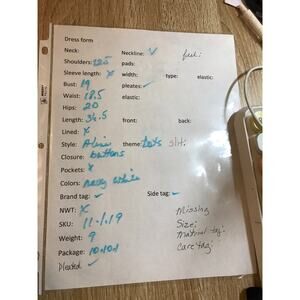 Dress form
Neck: Neckline: ✓
Shoulders: 12.5 pads:
Sleeve length: x width: type: elastic:
Bust: 19 pleates: ✓
Waist: 18.5 elastic:
Hips: 20
Length: 34.5 front: back:
Lined: x
Style: Aline theme: dots slit:
Closure: buttons
Pockets: x
Colors: navy white
Brand tag: ✓ Side tag: ✓
NWT: x Missing
SKU: 11-1-19 Size:
Weight: 9 Material tag:
Package: 10.10.1 Care tag:
Pleated ✓